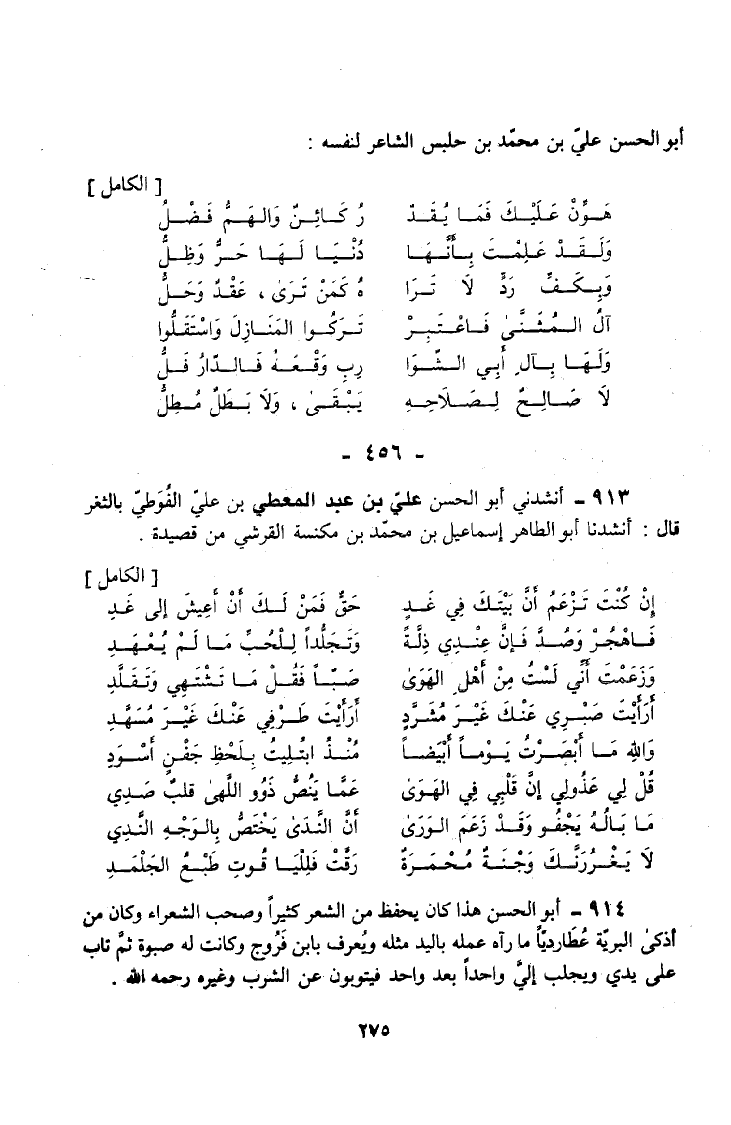 أبو الحسن عليّ بن محمّد بن حلبس الشاعر لنفسه :
[ الكامل ]
هَوِّنْ عَلَيْكَ فَمَا يُقَدْ رُ كَائِنٌ وَالهَمُّ فَضْلُ
وَلَقَدْ عَلِمْتَ بِأَنَّهَا دُنْيَا لَهَا حَرُّ وَظِلُّ
وَبِكَفِّ رَدٍّ لَا تَرَا هُ كَمَنْ تَرَى ، عَقْدٌ وَحَلُّ
آلُ المُثَنَّى فَاعْتَبِرْ تَرَكُوا المَنَازِلَ وَاسْتَقَلُّوا
وَلَهَا بِآلِ أَبِي الشَّوَا رِبِ وَقْعَةٌ فَالدَّارُ فَلُّ
لَا صَالِحٌ لِصَلَاحِهِ يَبْقَى ، وَلَا بَطَلٌ مُطِلُّ
- ٤٥٦ -
٩١٣ - أنشدني أبو الحسن عليّ بن عبد المعطي بن عليّ الفُوَطيّ بالثغر
قال : أنشدنا أبو الطاهر إسماعيل بن محمّد بن مكنسة القرشي من قصيدة .
[ الكامل ]
إِنْ كُنْتَ تَزْعَمُ أَنَّ بَيْتَكَ فِي غَدِ حَقٌّ فَمَنْ لَكَ أَنْ أَعِيشَ إلى غَدِ
فَاهْجُرْ وَصُدَّ فَإِنَّ عِنْدِي ذِلَّةً وَتَجَلُّداً لِلْحُبِّ مَا لَمْ يُعْهَدِ
وَزَعَمْتَ أَنِّي لَسْتُ مِنْ أَهْلِ الهَوَى صَبّاً فَقُلْ مَا تَشْتَهِي وَتَقَلَّدِ
أَرَأَيْتَ صَبْرِي عَنْكَ غَيْرَ مُشَرَّدٍ أَرَأَيْتَ طَرْفِي عَنْكَ غَيْرَ مُسَهَّدِ
وَاللهِ مَا أَبْصَرْتُ يَوْماً أَبْيَضاً مُنْذُ ابتُلِيتُ بِلَحْظِ جَفْنٍ أَسْوَدِ
قُلْ لِي عَذُولِي إِنَّ قَلْبِي فِي الهَوَى عَمَّا يَنُصُّ ذَوُو اللَّهَى قلبٌ صَدِي
مَا بَالُهُ يَجْفُو وَقَدْ زَعَمَ الوَرَى أَنَّ النَّدَى يَخْتَصُّ بِالوَجْهِ النَّدِي
لَا يَغْرُرَنَّكَ وَجْنَةٌ مُحْمَرَةٌ رَقَّتْ فَلِلْيَا قُوتِ طَبْعُ الجَلْمَدِ
٩١٤ - أبو الحسن هذا كان يحفظ من الشعر كثيراً وصحب الشعراء وكان من
أذكى البريّة عُطَارديّاً ما رآه عمله باليد مثله ويُعرف بابن فَرُّوج وكانت له صبوة ثمَّ تاب
على يدي ويجلب إليَّ واحداً بعد واحد فيتوبون عن الشرب وغيره رحمه الله .
٢٧٥